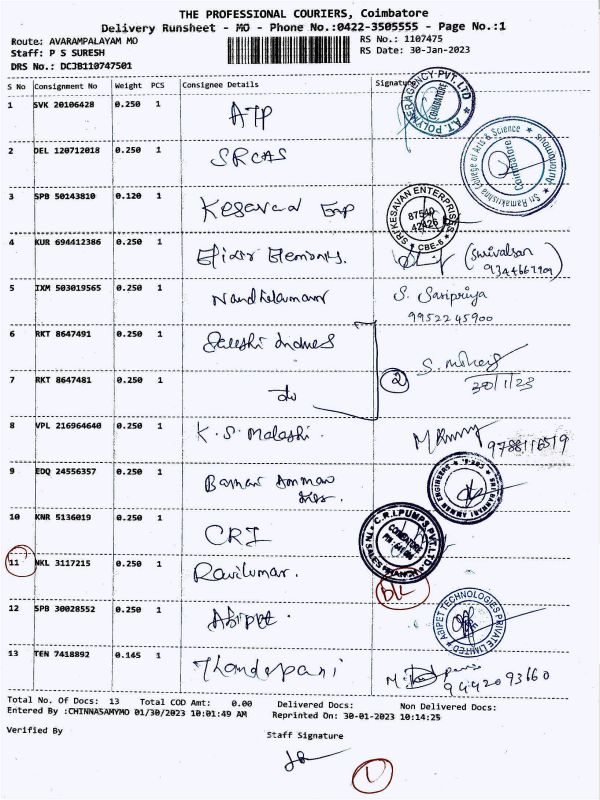 THE PROFESSIONAL COURIERS, Coimbatore
Delivery Runsheet - MO - Phone No.:0422-3505555 - Page No.:1
Route: AVARAMPALAYAM MO
RS No.: 1107475
Staff: P S SURESH
RS Date: 30-Jan-2023
DRS No.: DCJB110747501
S No Consignment No Weight PCS Consignee Details Signature
1 SVK 20106428 0.250 1 ATP
A.T. POLYMERAGENCY PVT. LTD COIMBATORE
2 DEL 120712018 0.250 1 SRCAS
Sri Ramakrishna College of Arts & Science Autonomous Coimbatore
3 SPB 50143810 0.120 1 Kesavan Enp
SRI KESAVAN ENTERPRISES CBE-6
4 KUR 694412386 0.250 1 Elements.
5 IXM 503019565 0.250 1 Nandhakumar S. Saripriya
9952245900
6 RKT 8647491 0.250 1
7 RKT 8647481 0.250 1 do 2
30/1/23
8 VPL 216964640 0.250 1 K. S. 9788116519
9 EDQ 24556357 0.250 1 Bannari Amman
SRI BANNARI AMMAN ENGINEERS
10 KNR 5136019 0.250 1 CRI
C.R.I.PUMPS PVT.LTD. COIMBATORE
11 NKL 3117215 0.250 1 Ravikumar. D/L
12 SPB 30028552 0.250 1 Abipet
ABIPET TECHNOLOGIES PRIVATE LIMITED
13 TEN 7418892 0.145 1 Thandapani
9442093660
Total No. Of Docs: 13 Total COD Amt: 0.00 Delivered Docs: Non Delivered Docs:
Entered By :CHINNASAMYMO 01/30/2023 10:01:49 AM Reprinted On: 30-01-2023 10:14:25
Verified By Staff Signature
1